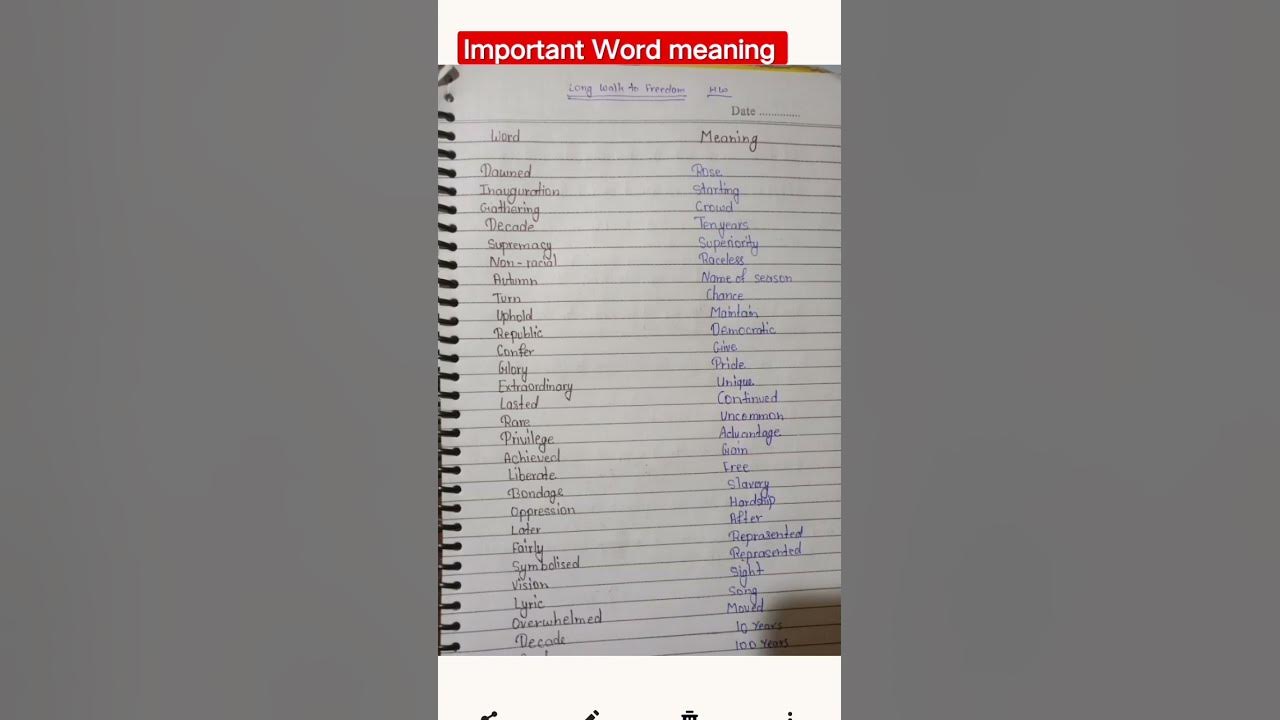 Important Word meaning
Long Walk to Freedom HW
Date ..............
Word Meaning
Dawned Rose
Inauguration Starting
Gathering Crowd
Decade Ten years
Supremacy Superiority
Non-racial Raceless
Autumn Name of season
Turn Chance
Uphold Maintain
Republic Democratic
Confer Give
Glory Pride
Extraordinary Unique
Lasted Continued
Rare Uncommon
Privilege Advantage
Achieved Gain
Liberate Free
Bondage Slavery
Oppression Hardship
Later After
Fairly Reprasented
Symbolised Reprasented
Vision Sight
Lyric Song
Overwhelmed Moved
Decade 10 years
100 years